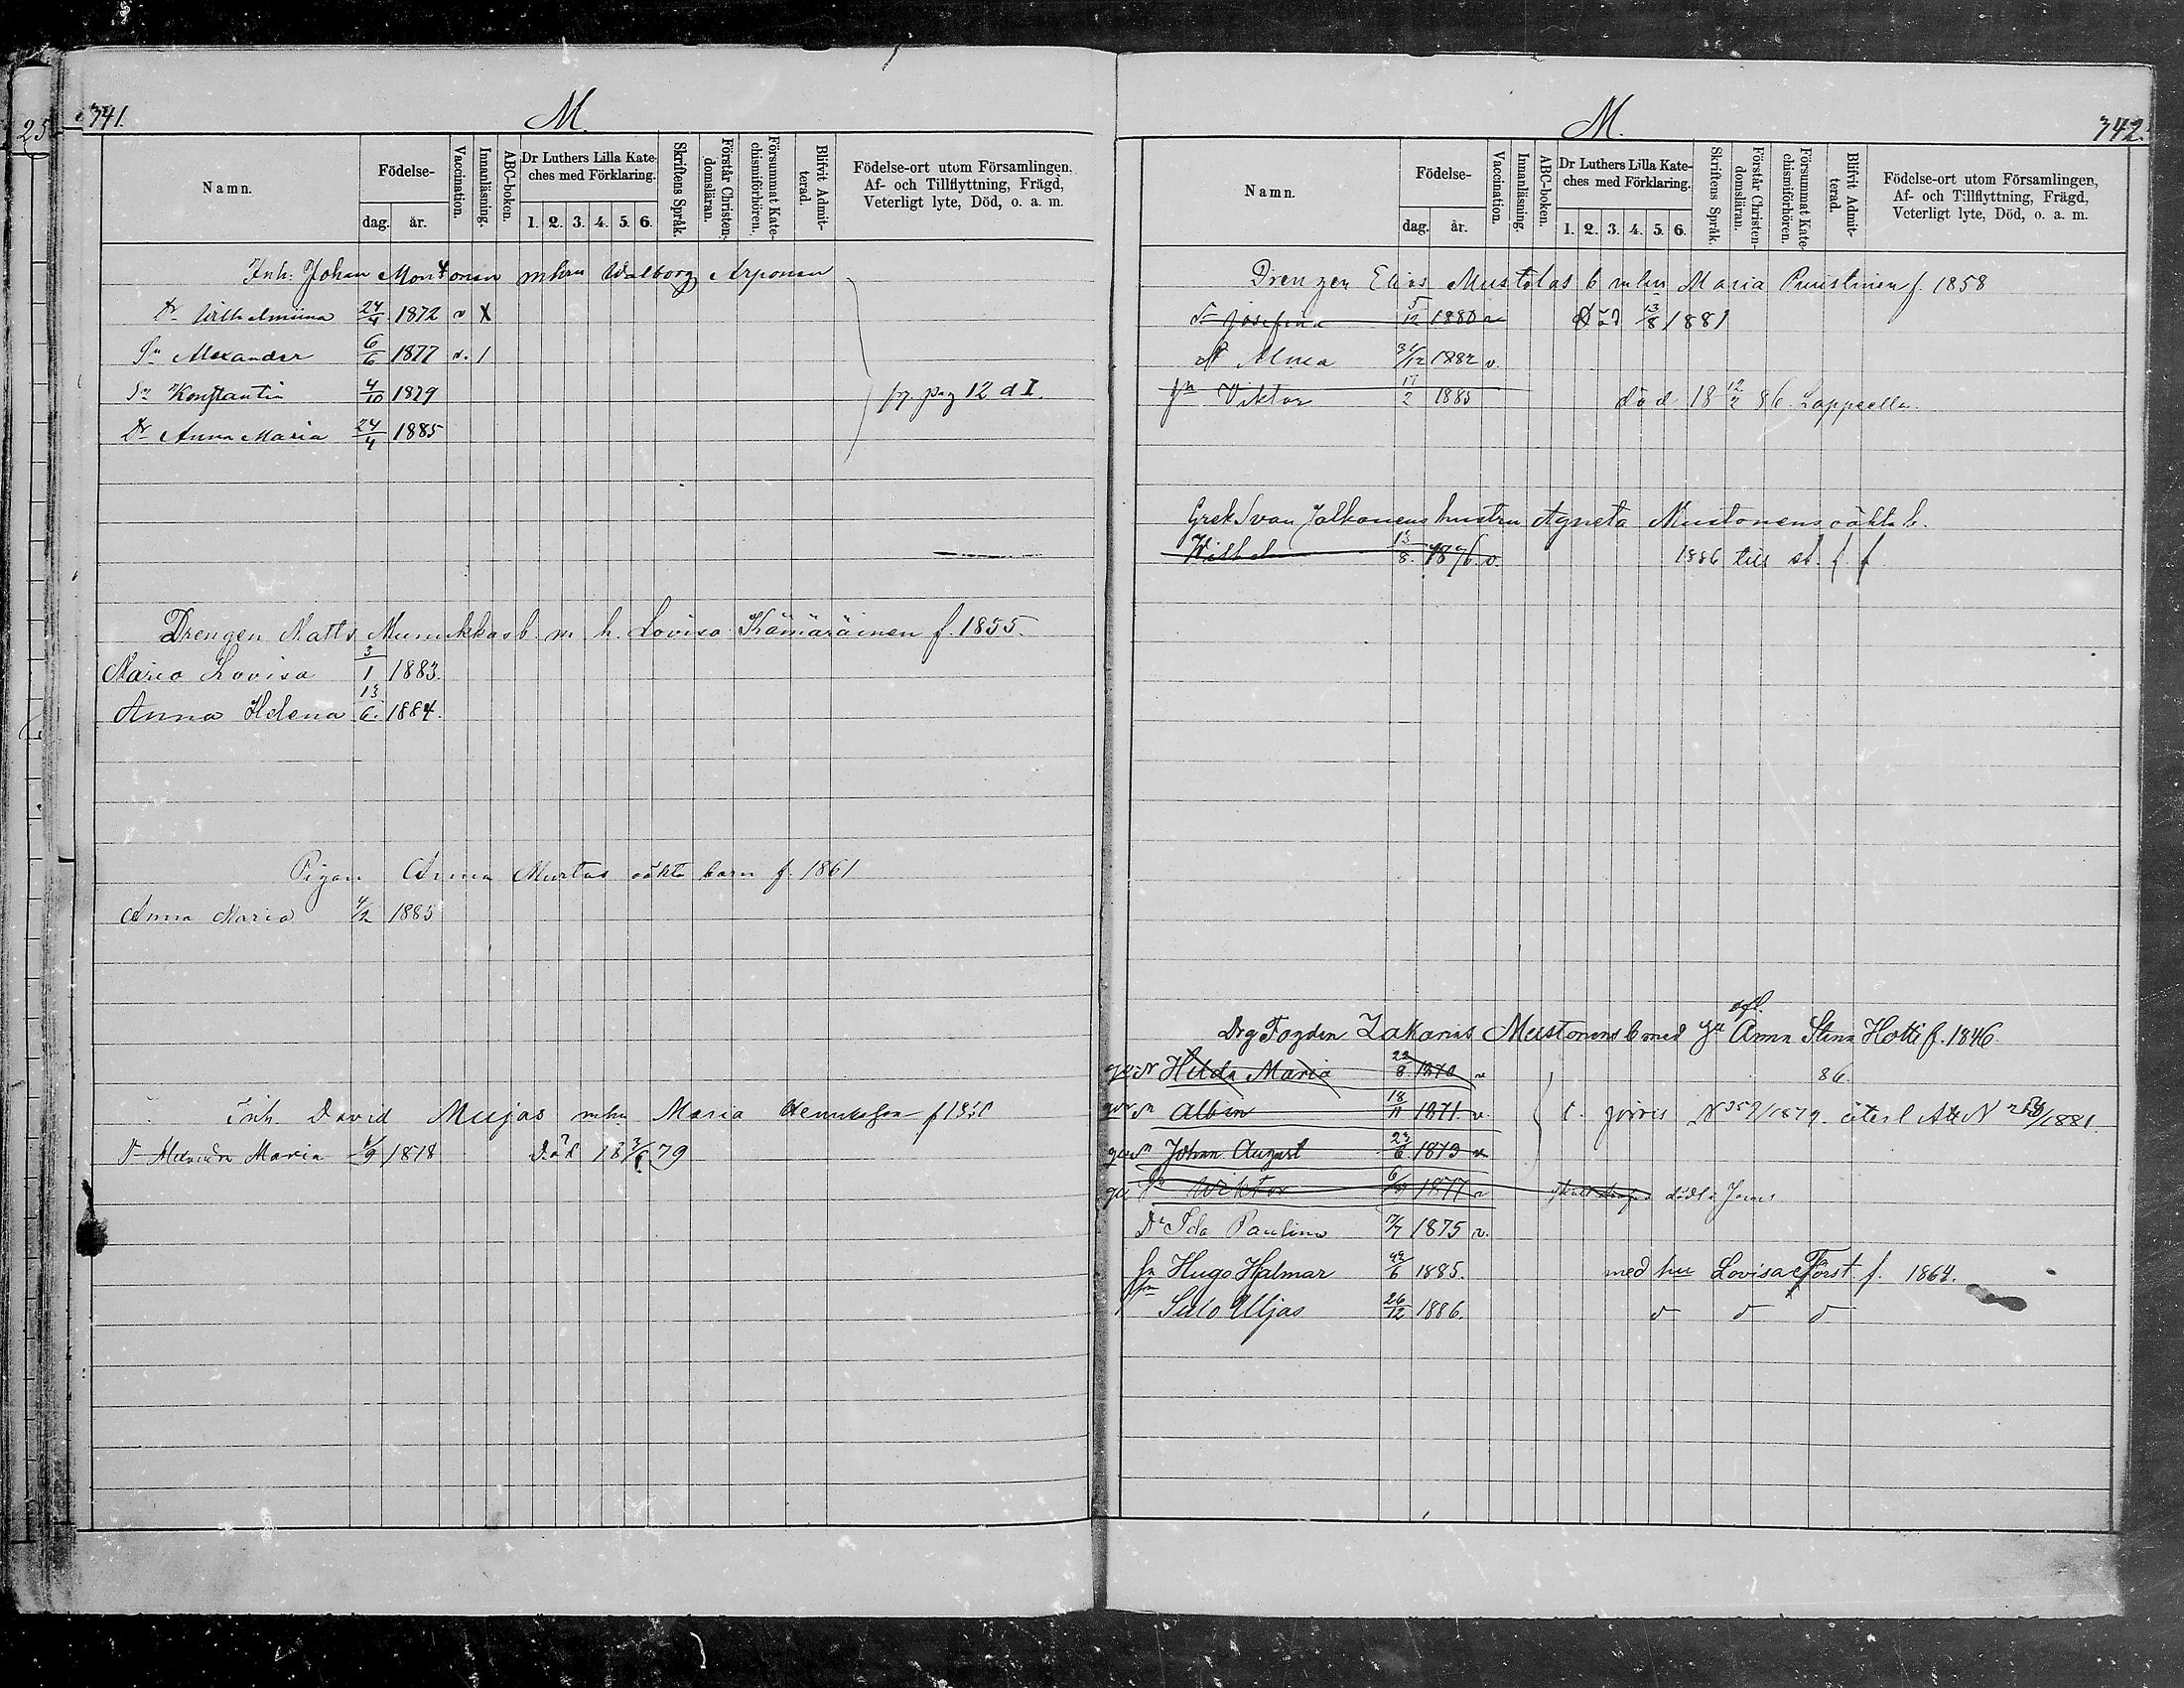 341.
M.
Namn.
Födelse-
dag. år.
Vaccination.
Innanläsning.
ABC-boken.
Dr Luthers Lilla Kate-
ches med Förklaring.
1. 2. 3. 4. 5. 6.
Skriftens Språk.
Förstår Christen-
domsläran.
Försummat Kate-
chismiförhören.
Blifvit Admit-
terad.
Födelse-ort utom Församlingen.
Af- och Tillflyttning, Frägd,
Veterligt lyte, Död, o. a. m.
Inh: Johan Montonen mhru Walborg Arponen
Dr Wilhelmiina 24/4 1872 v X
Sn Alexander 6/6 1877 v. 1
Sn Konstantin 4/10 1879 pag 12 d I.
Dr Anna Maria 24/4 1885
Drengen Matts Munukkas b. m h. Lovisa Kämäräinen f. 1855.
Maria Lovisa 3/1 1883.
Anna Helena 13/6. 1884.
Pigan Anna Murtas oäkta barn f. 1861
Anna Maria 4/2 1885
Inh. David Mujas mhu Maria
Maria 1878 Död 18 79
M.
342.
Namn.
Födelse-
dag. år.
Vaccination.
Innanläsning.
ABC-boken.
Dr Luthers Lilla Kate-
ches med Förklaring.
1. 2. 3. 4. 5. 6.
Skriftens Språk.
Förstår Christen-
domsläran.
Försummat Kate-
chismiförhören.
Blifvit Admit-
terad.
Födelse-ort utom Församlingen,
Af- och Tillflyttning, Frägd,
Veterligt lyte, Död, o. a. m.
Drengen Elias Mustolas b mhu Maria Puustinen f. 1858
Josefina 5/12 1880 v Död 13/8 1881
Alma 31/12 1882 v.
Sn Viktor 17/2 1885 död 18 12/2 86. Lappvella.
Grek Ivan Jalkanens hustru Agneta Mustonens oäkta b.
13/8. 1876 v. 1886 till st.
Drg Fogden Zakarias Mustonens b med Anna Stina Hotti f. 1846
Hilda Maria 22/8 1870 v 86.
Albin 18/11 1871 v. N 357/1879. återl Att N /1881
Johan August 23/6 1873 v
Wiktor 1877 v
Dr Ida Paulina 17/7 1875 v.
Sn Hugo Hjalmar 6 1885. med hu Lovisa Först f. 1864.
Sulo Uljas 26/12 1886.